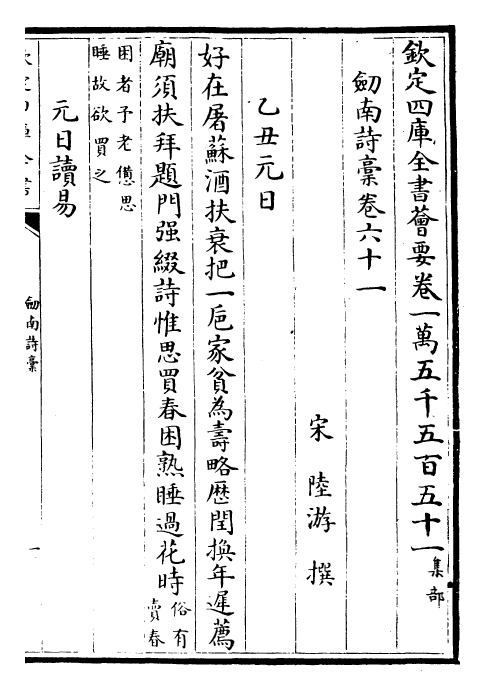 欽定四庫全書薈要卷一萬五千五百五十一集部
劒南詩槀卷六十一
宋 陸游 撰
乙丑元日
好在屠蘇酒扶衰把一巵家貧為壽略歴閏換年遲薦
廟須扶拜題門强綴詩惟思買春困熟睡過花時俗有賣春
困者予老憊思睡故欲買之
元日讀易
劒南詩槀
一